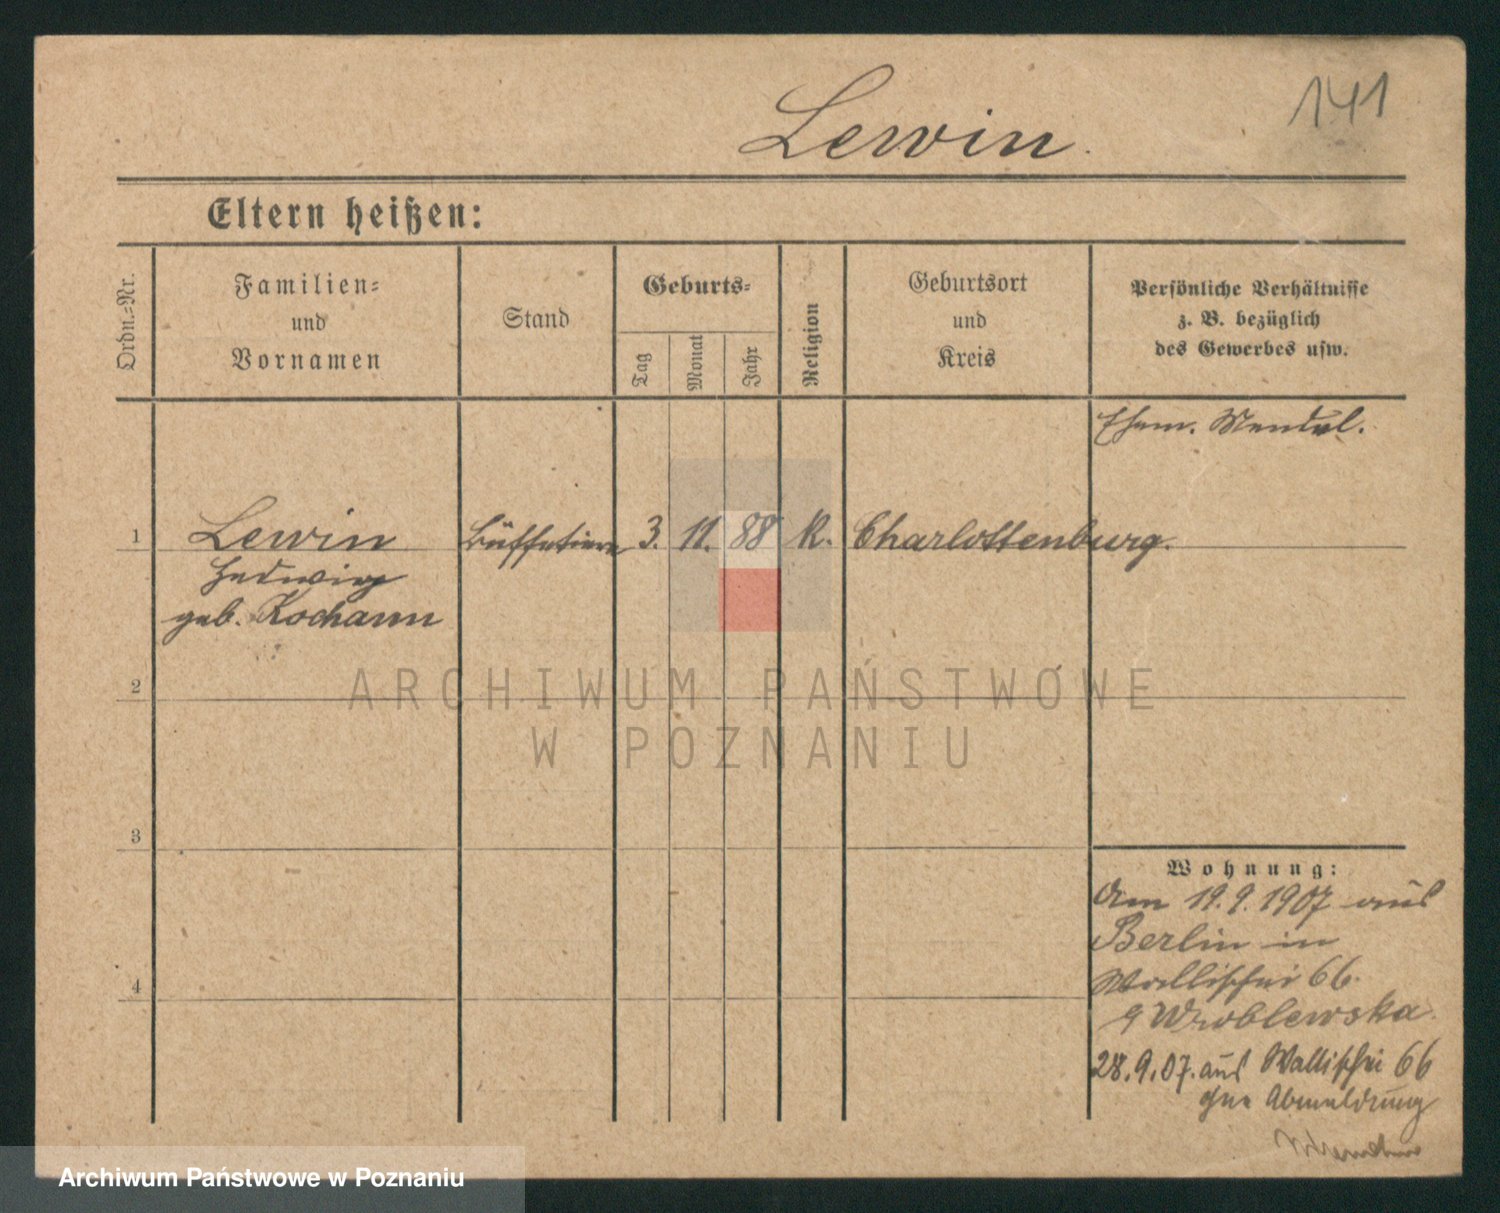 141
Lewin.
Eltern heißen:
Ordn.-Nr.
Familien-
und
Vornamen
Stand
Geburts-
Tag
Monat
Jahr
Religion
Geburtsort
und
Kreis
Persönliche Verhältnisse
z. B. bezüglich
des Gewerbes usw.
Ehem. Mendel.
1 Lewin Büffetiere 3. 11. 88 K. Charlottenburg.
Hedwig
geb. Kochann
2
3
4
Wohnung:
Am 19.9.1907 aus
Berlin in
Wallischei 66.
Wroblewska.
28.9.07. aus Wallischei 66
ohne Abmeldung
ARCHIWUM PAŃSTWOWE
W POZNANIU
Archiwum Państwowe w Poznaniu